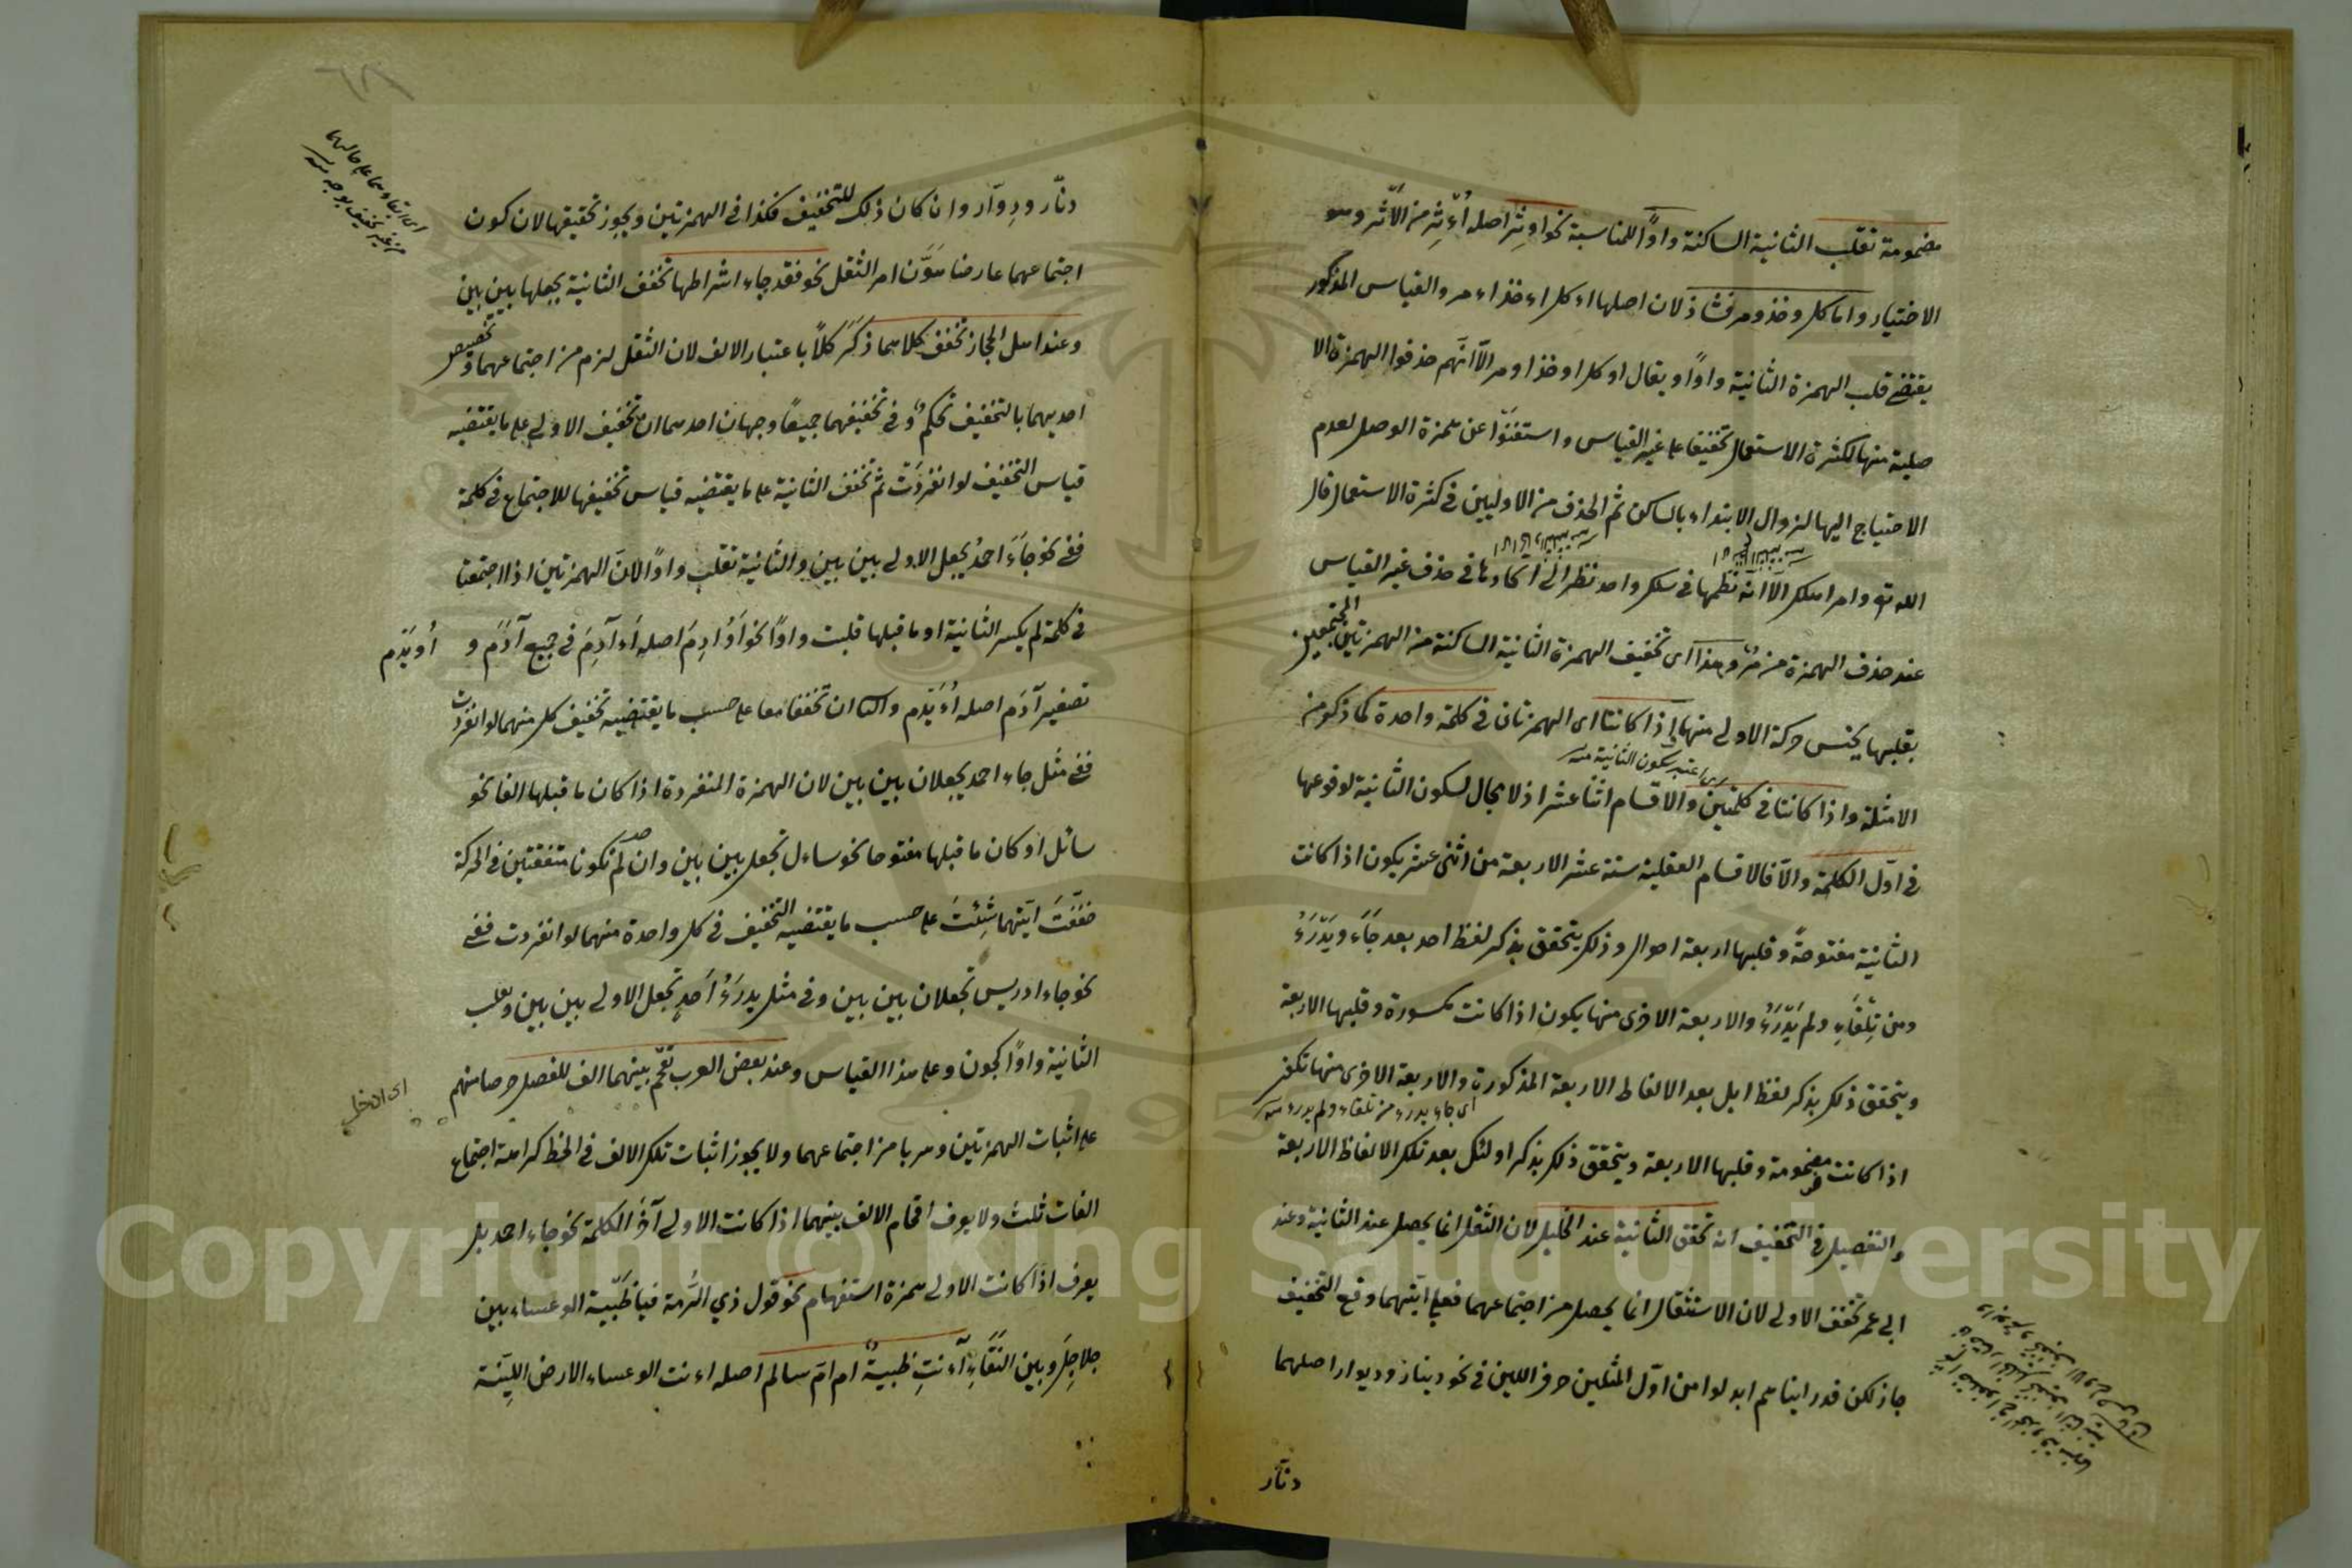 مضمومة تقلب الثانية الساكنة واوًا للمناسبة نحو اوثِر اصله اُءْثِر من الاَثر وهو
الاختيار واما كل وخذ ومر فشاذ لان اصلها اءكل اءخذ اءمر والقياس المذكور
يقتضى قلب الهمزة الثانية واوًا ويقال اوكل اوخذ اومر الّا انّهم حذفوا الهمزة الا
صلية منها لكثرة الاستعمال تخفيفا على غير القياس واستغنوا عن همزة الوصل لعدم
الاحتياج اليها لزوال الابتداء بالساكن ثم الحذف من الاوليين فى كثرة الاستعمال قال
الله تع وامر اهلك الّا انه نظمها فى سلك واحد نظرا الى اتحادها فى حذف غير القياس
عند حذف الهمزة من مُر وهذا اى تخفيف الهمزة الثانية الساكنة من الهمزتين المجتمعين
بقلبها بجنس حركة الاولى منها اذا كانتا اى الهمزتان فى كلمة واحدة كما ذكر من
اى اعتبر سكون الثانية منه
الامثلة واذا كانتا فى كلمتين والاقسام اثنا عشر اذ لا مجال لسكون الثانية لوقوعها
فى اوّل الكلمة والّا فالاقسام العقلية ستة عشر الاربعة من اثنى عشر يكون اذا كانت
الثانية مفتوحةً وقبلها اربعة احوال وذلك يتحقق بذكر لفظ احد بعد جَاءَ ويَدْرَءُ
ومن تِلْقَاءِ ولم يَدْرَءْ والاربعة الاخرى منها يكون اذا كانت مكسورة وقبلها الاربعة
ويتحقق ذلك بذكر لفظ ابل بعد الالفاظ الاربعة المذكورة والاربعة الاخرى منها تكون
اى جاء يدرء من تلقاء ولم يدرء منه
اذا كانت مضمومة وقبلها الاربعة ويتحقق ذلك بذكر اولئك بعد تلك الالفاظ الاربعة
والتفصيل فى التخفيف انه تخفف الثانية عند الخليل لان الثقل انما يحصل عند الثانية وعند
ابى عمر تخفف الاولى لان الاستثقال انما يحصل من اجتماعهما فعلى ايتهما وقع التخفيف
جاز لكن قد راينا هم ابدلوا من اوّل المثلين حرف اللين فى نحو دينار وديوار اصلهما
دنّار
دنّار ودِوّار وان كان ذلك للتخفيف فكذا فى الهمزتين ويجوز تحقيقها لان كون
اجتماعهما عارضا هَوَّن امر الثقل نحو فقد جاء اشراطها تخفف الثانية بجعلها بين بين
وعند اهل الحجاز تخفف كلاهما ذكَّر كلًا باعتبار الالف لان الثقل لزم من اجتماعهما وتخصيص
احديهما بالتخفيف تحكمٌ وفى تخفيفهما جميعًا وجهان احدهما ان تخفيف الاولى على ما يقتضيه
قياس التخفيف لو انفردَتْ ثم تخفف الثانية على ما يقتضيه قياس تخفيفها للاجتماع فى كلمة
ففى نحو جَاءَ احدُ يجعل الاولى بين بين والثانية تقلب واوًا لانّ الهمزتين اذا اجتمعتا
فى كلمة لم يكسر الثانية او ما قبلها قلبت واوًا نحو اَوُادِمَ اصله اَءَآدِمَ فى جمع آدَمَ و اُوَيْدِم
تصغير آدَم اصله اُءَيْدِم والثا ان تخففا معا على حسب ما يقتضيه تخفيف كل منهما لو انفردت
ففى مثل جاء احمد يجعلان بين بين لان الهمزة المنفردة اذا كان ما قبلها الفا نحو
سائل او كان ما قبلها مفتوحا نحو ساءل تجعل بين بين وان لم تكونا متفقتين فى الحركة
خفّفتَ ايّتهما شِئتَ على حسب ما يقتضيه التخفيف فى كل واحدة منهما لو انفردت ففى
نحو جاء ادريس تجعلان بين بين وفى مثل يدرَءُ اَحَدٍ تجعل الاولى بين بين وتقلب
الثانية واوًا كجون وعلى هذا القياس وعند بعض العرب تقحم بينهما الف للفصل حرصا منهم
على اثبات الهمزتين وهربا من اجتماعهما ولا يجوز اثبات تلك الالف فى الخط كراهة اجتماع
الفات ثلث ولا يعرف اقحام الالف بينهما اذا كانت الاولى آخر الكلمة نحو جاء احمد بل
يعرف اذا كانت الاولى همزة استفهام نحو قول ذي الرُّمة فيا ظبية الوعساء بين
جلاجِلَ وبين النَقَاءِ آءَنتِ ظبيةٌ ام امّ سالم اصله اءنت الوعساء الارض الليّنة
اى ابقاءهما على حالهما
من غير تخفيف بوجه منه
اى ادخل